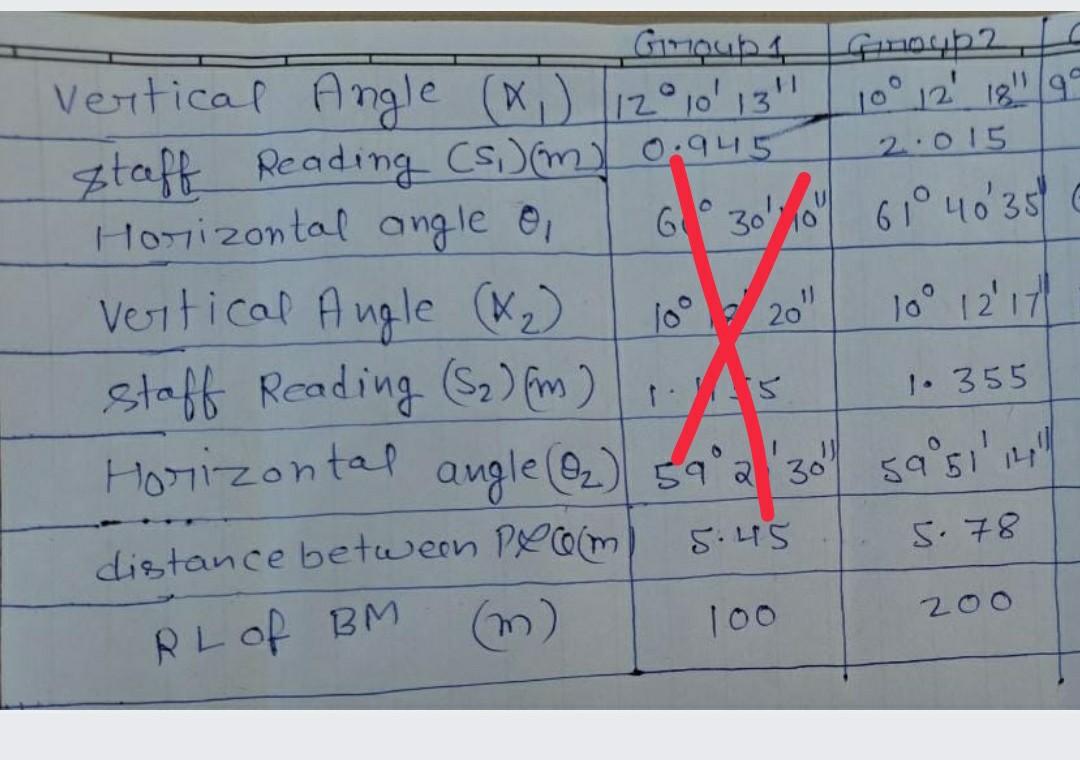 Group1 Group2
Vertical Angle (α₁) 12° 10' 13" 10° 12' 18" 9°
Staff Reading (S₁)(m) 0.945 2.015
Horizontal angle θ₁ 30' 10" 61° 40' 35"
Vertical Angle (α₂) 10° 20" 10° 12' 17"
Staff Reading (S₂)(m) 1.355
Horizontal angle(θ₂) 59° 30" 59° 51' 14"
distance between P&Q(m 5.45 5.78
RL of BM (m) 100 200